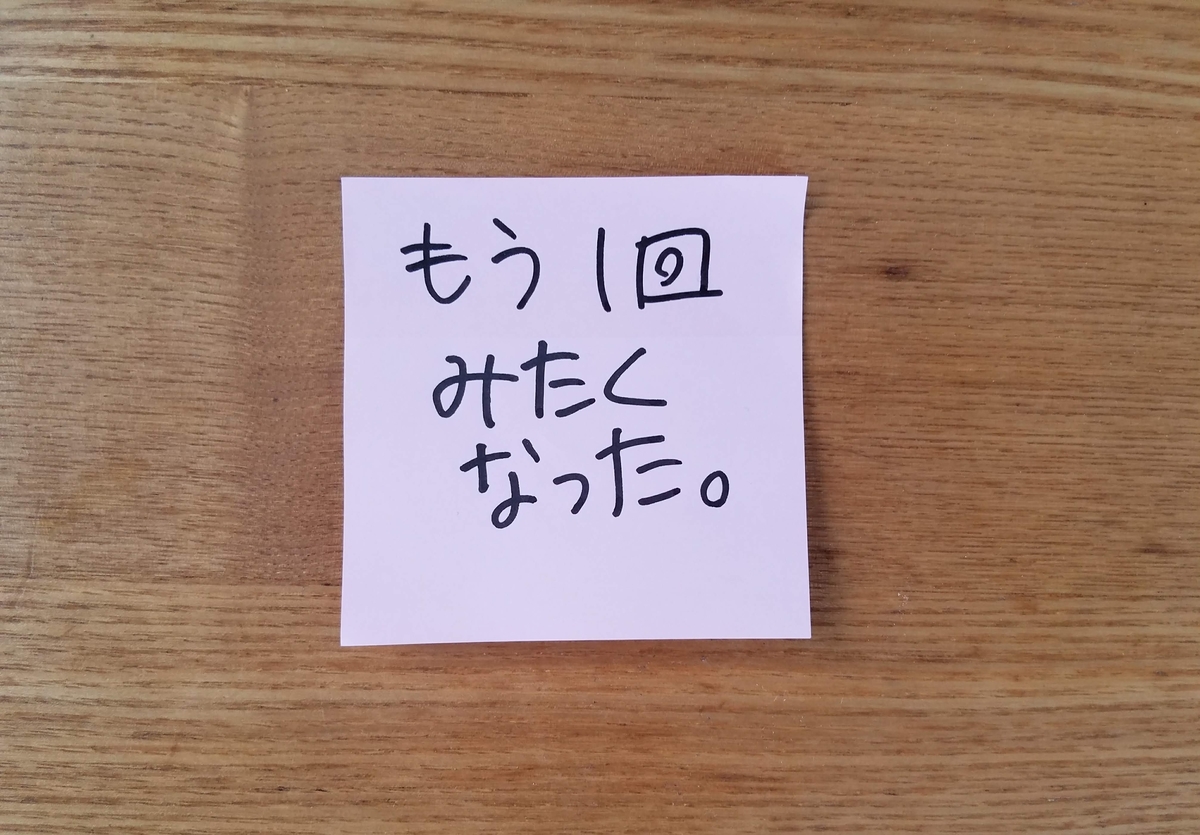 もう1回
みたく
なった。